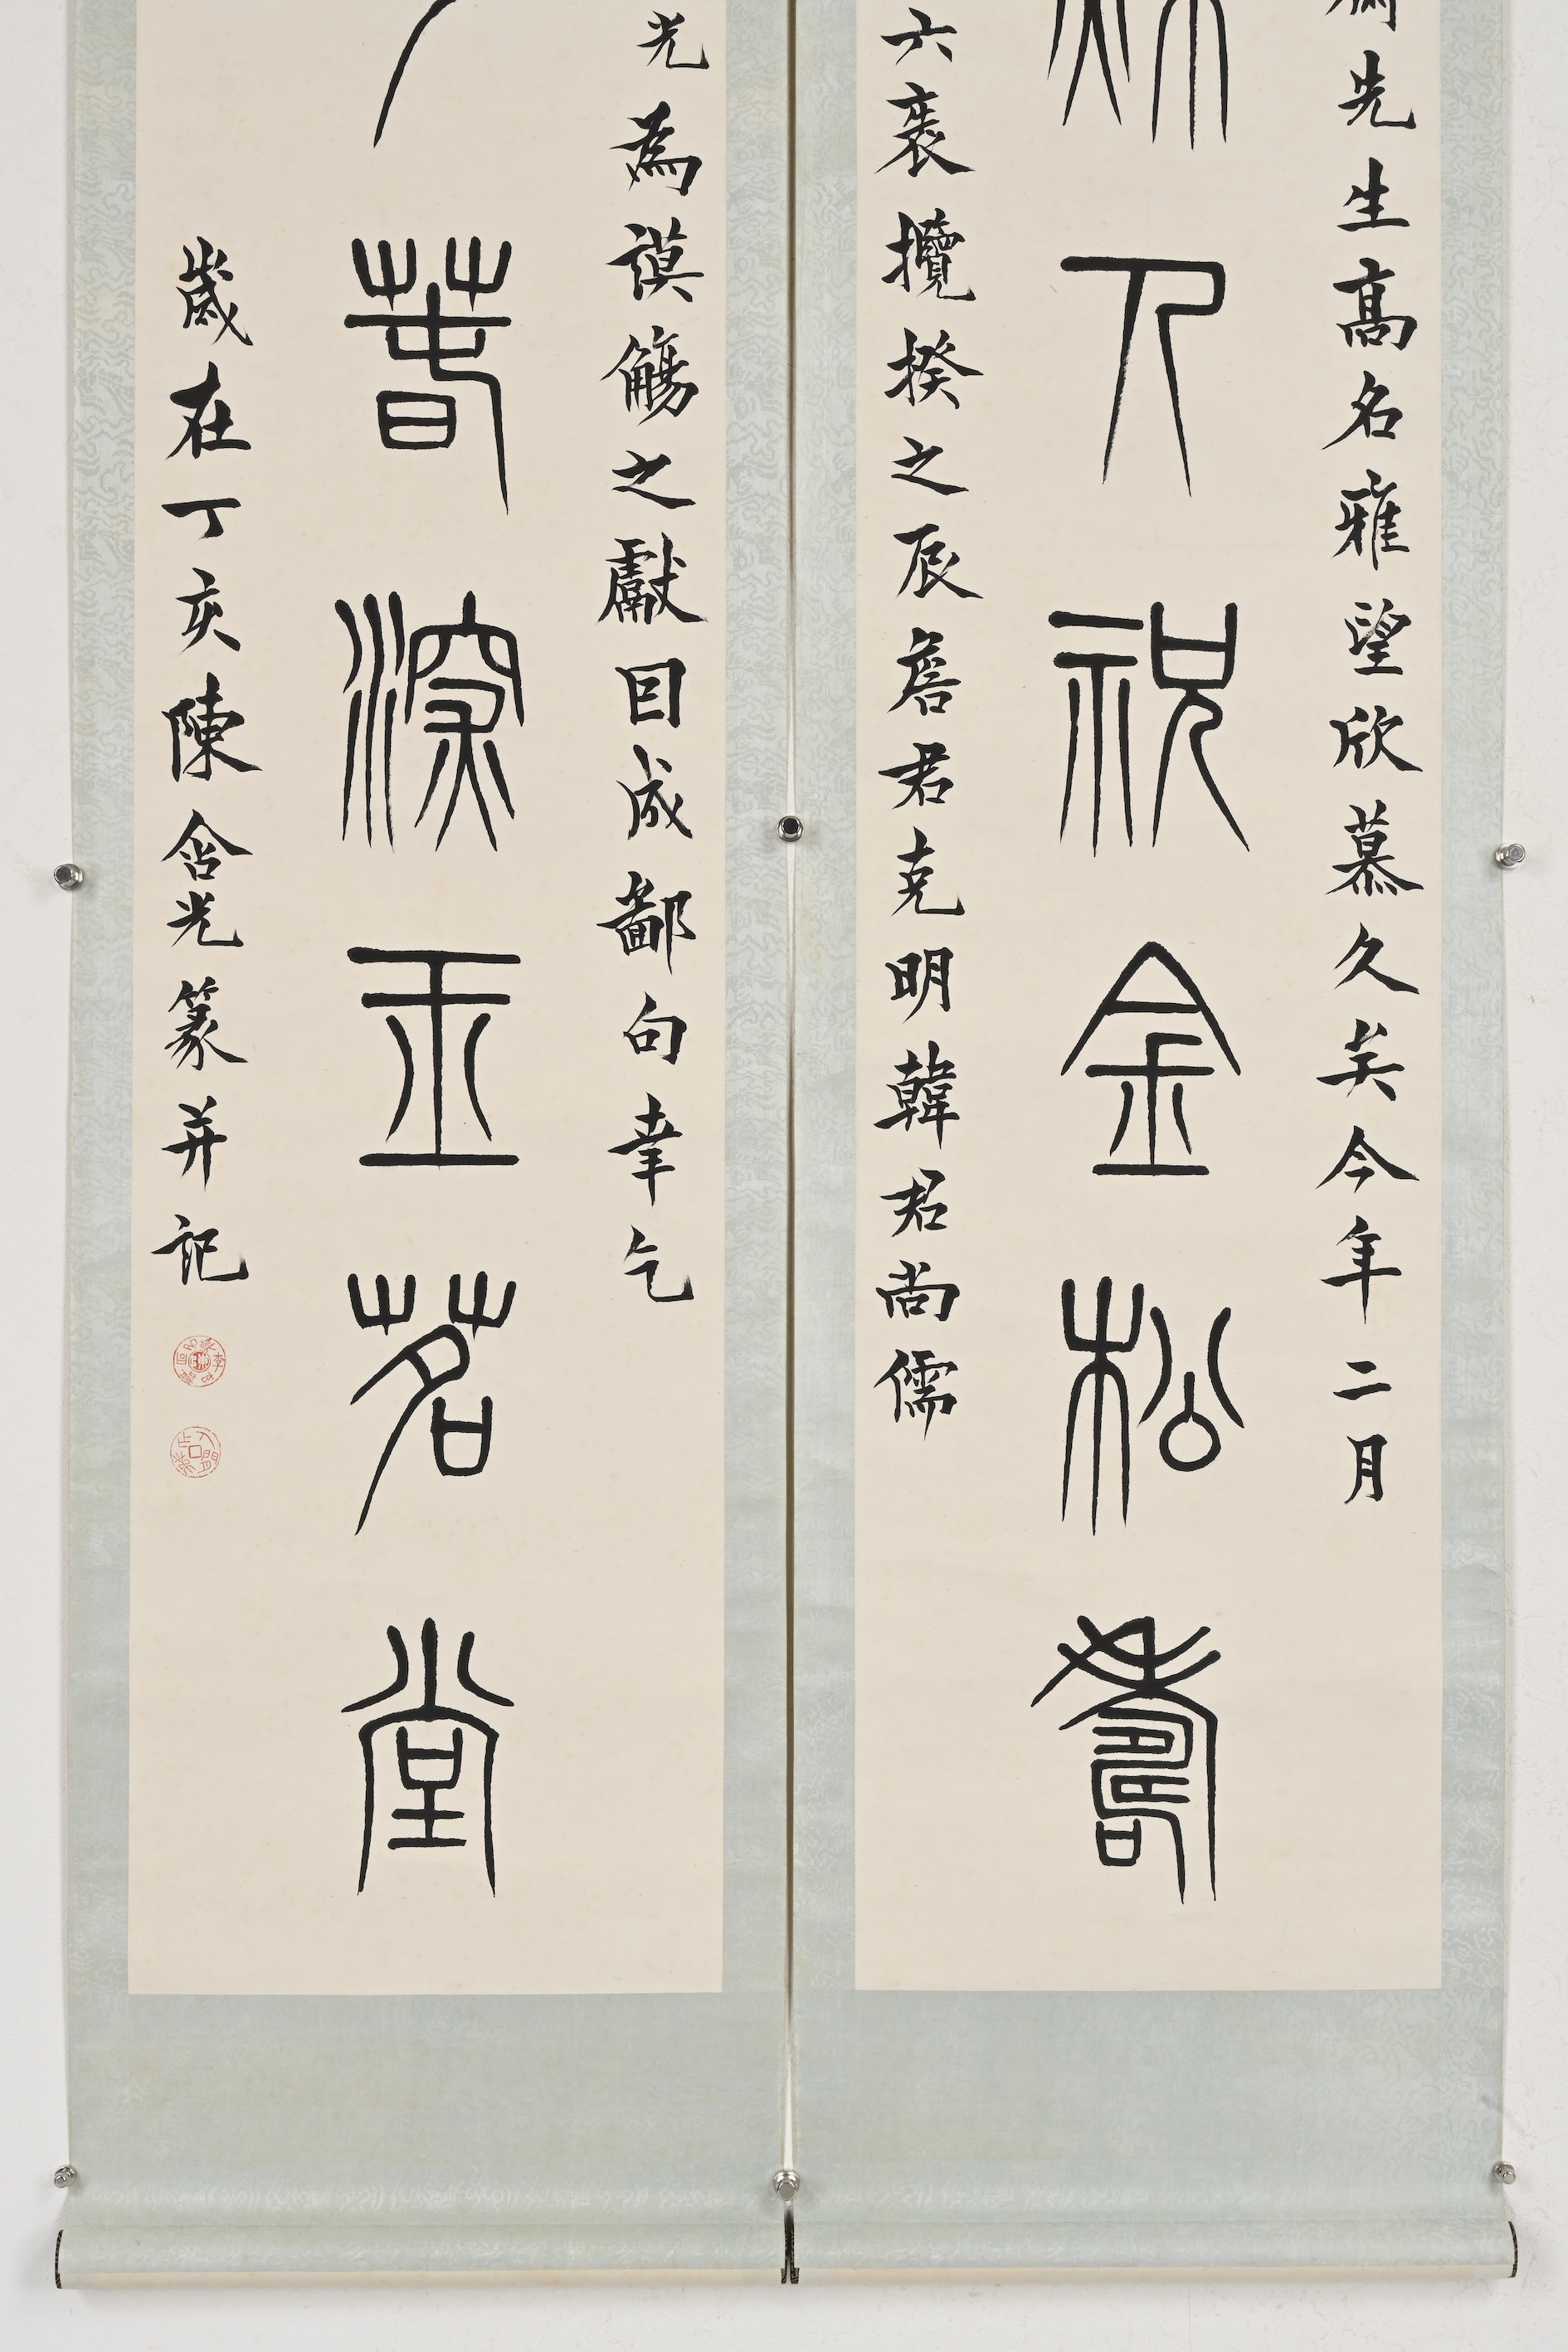 先生高名雅望欣慕久矣今年二月
人祝金松壽
六袠攬揆之辰詹君克明韓君尚儒
光為謨觴之獻囙成鄙句幸乞
春深玉茗堂
歲在丁亥陳含光篆并記